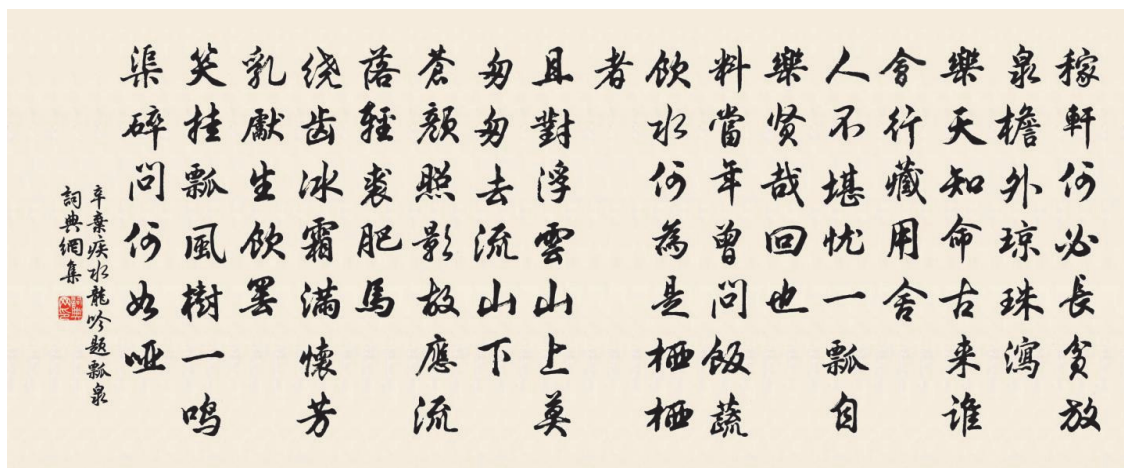 稼軒何必長貧放
泉檐外琼珠瀉
樂天知命古来谁
會行藏用舍
人不堪忧一瓢自
樂贤哉回也
料當年曾问饭蔬
饮水何為是栖栖
者
且對浮雲山上莫
匆匆去流山下
蒼颜照影故應流
落輕裘肥馬
绕齿冰霜满懷芳
乳獻生饮罢
笑挂瓢風樹一鸣
渠碎问何如哑
辛棄疾水龍吟题瓢泉
詞典網集